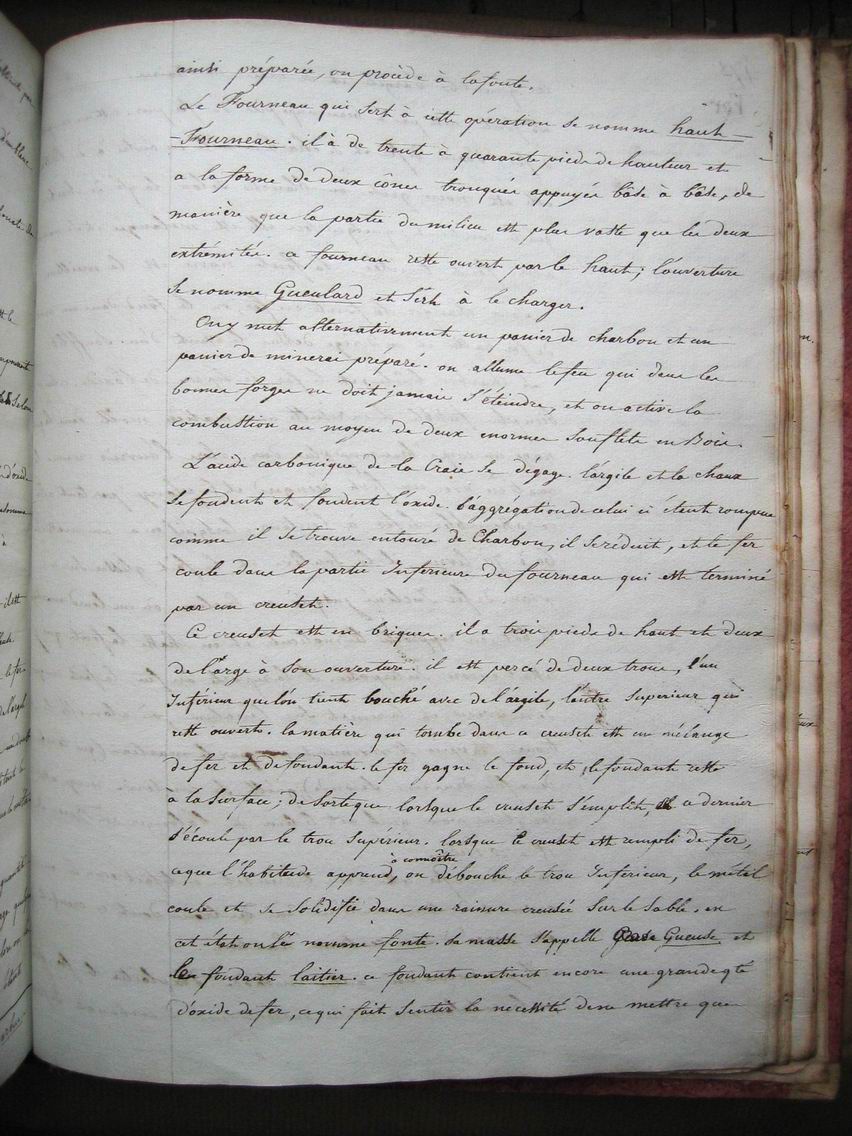 ainsi préparée, on procède à la fonte.
Le Fourneau qui sert à cette opération se nomme haut
-Fourneau. il à de trente à quarante pieds de hauteur et
a la forme de deux cônes tronqués appuyés bâse à bâse, de
manière que la partie du milieu est plus vaste que les deux
extrémités. ce fourneau reste ouvert par le haut; l'ouverture
se nomme Gueulard et sert à le charger.
On y met alternativement un panier de charbon et un
panier de minerai préparé. on allume le feu qui dans les
bonnes forges ne doit jamais s'éteindre, et on active la
combustion au moyen de deux enormes souflets en Bois.
L'acide carbonique de la Craie se dégage. l'argile et la chaux
se fondent et fondent l'oxide. l'aggrégation de celui ci étant rompue
comme il se trouve entouré de Charbon, il se réduit, et le fer
coule dans la partie Inférieure du fourneau qui est terminé
par un creuset.
Ce creuset est en briques. il a trois pieds de haut et deux
de l'arge à son ouverture. il est percé de deux trous, l'un
Inférieur que l'on tient bouché avec de l'argile, l'autre superieur qui
reste ouvert. la matière qui tombe dans ce creuset est un mélange
de fer et de fondant. le fer gagne le fond, et le fondant reste
à la surface; de sorte que lorsque le creuset s'emplit, ce dernier
s'écoule par le trou supérieur. lorsque le creuset est rempli de fer,
ce que l'habitude apprend à connoître, on débouche le trou Inférieur, le métal
coule et se solidifie dans une rainure creusée sur le sable. en
cet état on le nomme fonte. sa masse s'appelle Gueuse et
le fondant laitier. ce fondant contient encore une grande qté
d'oxide de fer, ce qui fait sentir la necessité de ne mettre que